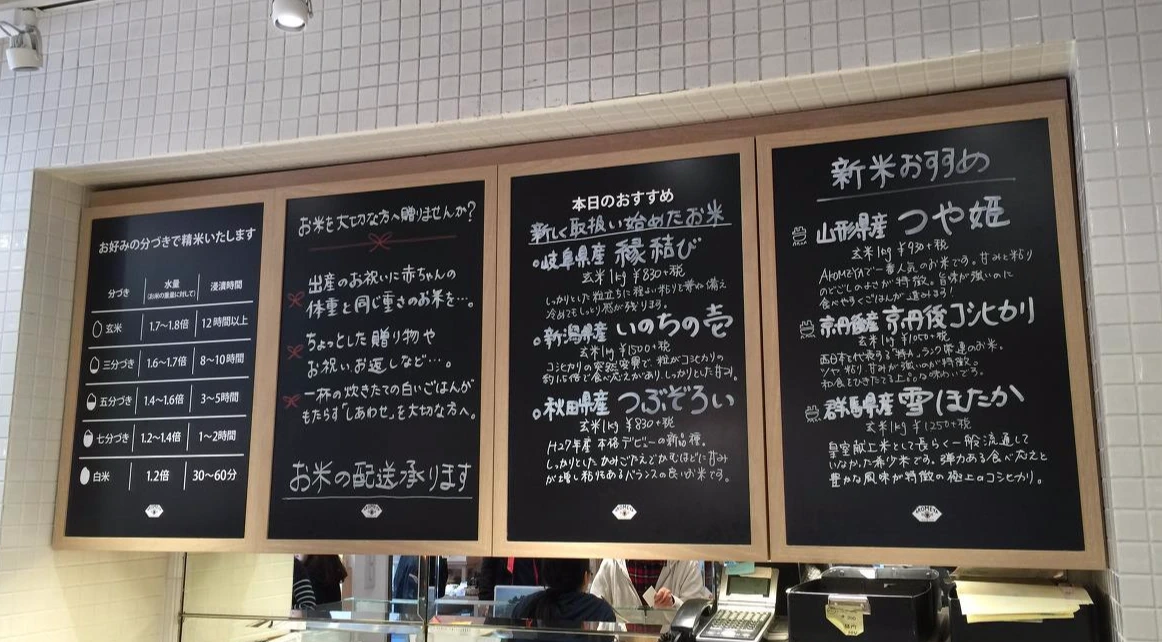 お好みの分づきで精米いたします
分づき 水量 浸漬時間
(お米の重量に対して)
玄米 1.7~1.8倍 12時間以上
三分づき 1.6~1.7倍 8~10時間
五分づき 1.4~1.6倍 3~5時間
七分づき 1.2~1.4倍 1~2時間
白米 1.2倍 30~60分
お米を大切な方へ贈りませんか?
出産のお祝いに赤ちゃんの
体重と同じ重さのお米を…。
ちょっとした贈り物や
お祝い、お返しなど…。
一杯の炊きたての白いごはんが
もたらす"しあわせ"を大切な方へ。
お米の配送承ります
本日のおすすめ
新しく取扱い始めたお米
岐阜県産 縁結び
玄米1kg ¥830+税
しっかりとした粒立ちに程よい粘りを兼ね備え
冷めてもしっかり感が残ります。
新潟県産 いのちの壱
玄米1kg ¥1500+税
コシヒカリの突然変異で、粒がコシヒカリの
約1.5倍で食べ応えがあり、しっかりとした甘み。
秋田県産 つぶぞろい
玄米1kg ¥830+税
H27年産 本格デビューの新品種。
しっかりとしたかみごたえでかむほどに甘み
が増し粘りもあるバランスの良いお米です。
新米おすすめ
山形県産 つや姫
玄米1kg ¥930+税
AKOMEYAで一番人気のお米です。甘みと粘り
のどごしのよさが特徴。旨味が強いのに
食べやすくごはんが進みます!
京丹後産 京丹後コシヒカリ
玄米1kg ¥1050+税
西日本を代表する特Aランク常連のお米。
ツヤ、粘り、甘みが強いのが特徴。
和食をひきたてる上品な味わいです。
群馬県産 雪ほたか
玄米1kg ¥1250+税
皇室献上米として長らく一般流通して
いなかった希少米です。弾力ある食べ応えと
豊かな風味が特徴の極上のコシヒカリ。